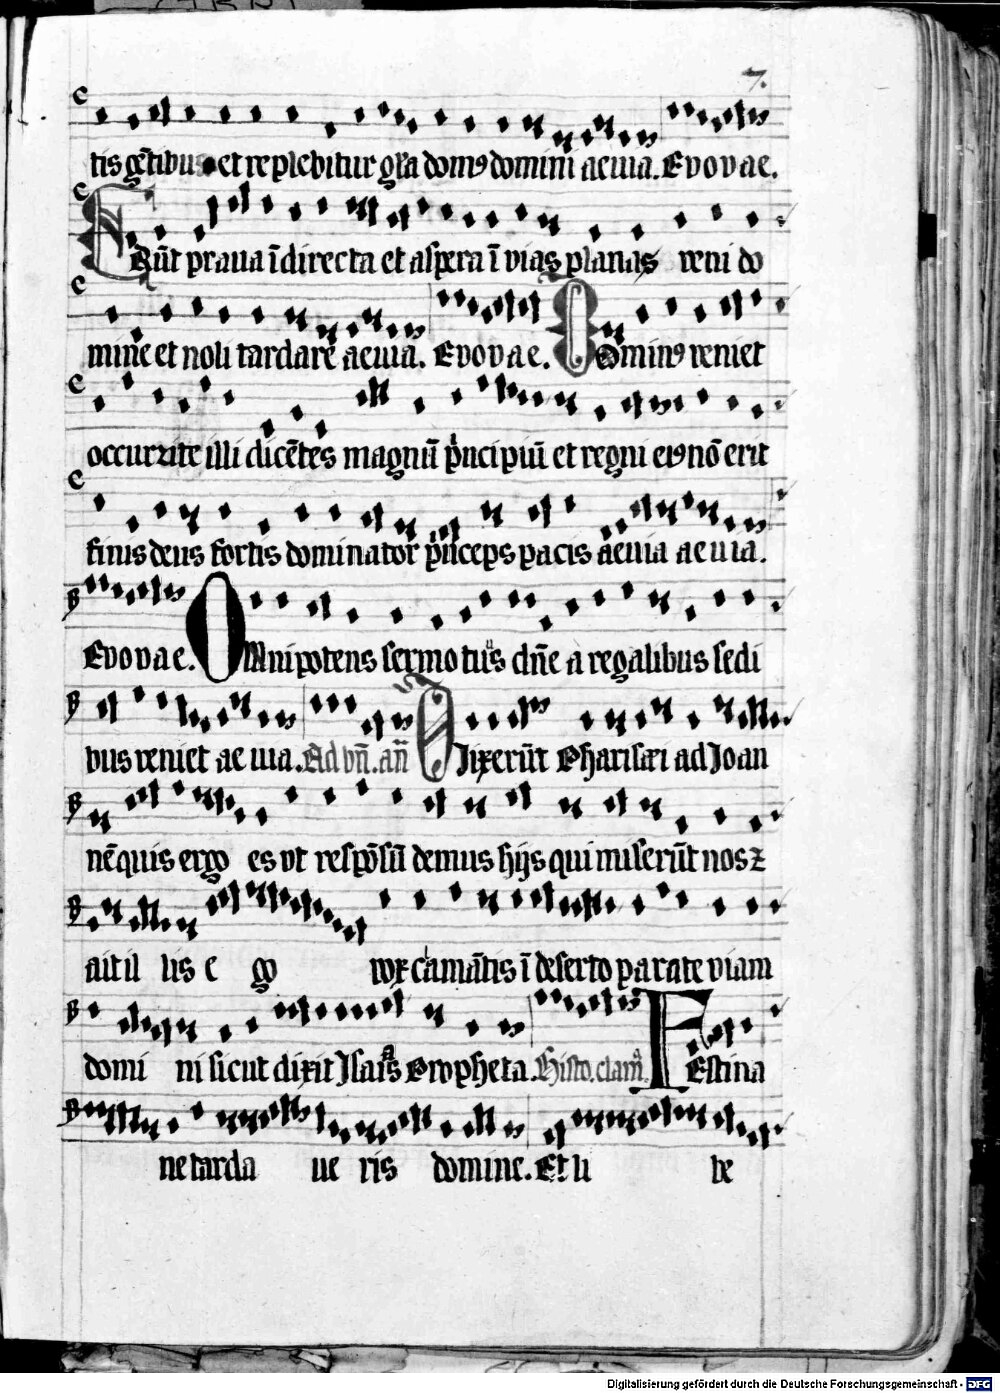 7.
tis gētibus et replebitur gl̄a domꝰ domini aeuia. Evovae.
ERūt praua ī directa et aspera ī vias planas veni do
mine et noli tardare aeuia. Evovae. Dominꝰ veniet
occurrite illi dicētes magnū pͥncipiū et regni eiꝰ nō erit
finis deus fortis dominator pͥnceps pacis aeuia aeuia.
Evovae. OMnipotens sermo tuus dn̄e a regalibus sedi
bus veniet aeuia. Ad bn̄. an̄ Dixerūt Pharisæi ad Joan
nē quis ergo es vt respōsū demus hijs qui miserūt nos z
ait il lis e go vox clamātis ī deserto parate viam
domi ni sicut dixit Jsaias Propheta. Histo. clam̄. FEstina
ne tarda ue ris domine. Et li be
Digitalisierung gefördert durch die Deutsche Forschungsgemeinschaft - DFG